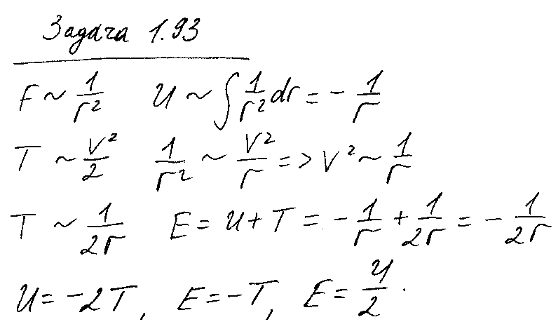 Задача 1.93
F ~ 1/r² U ~ ∫ 1/r² dr = - 1/r
T ~ v²/2 1/r² ~ v²/r => v² ~ 1/r
T ~ 1/2r E = U + T = - 1/r + 1/2r = - 1/2r
U = -2T, E = -T, E = U/2.